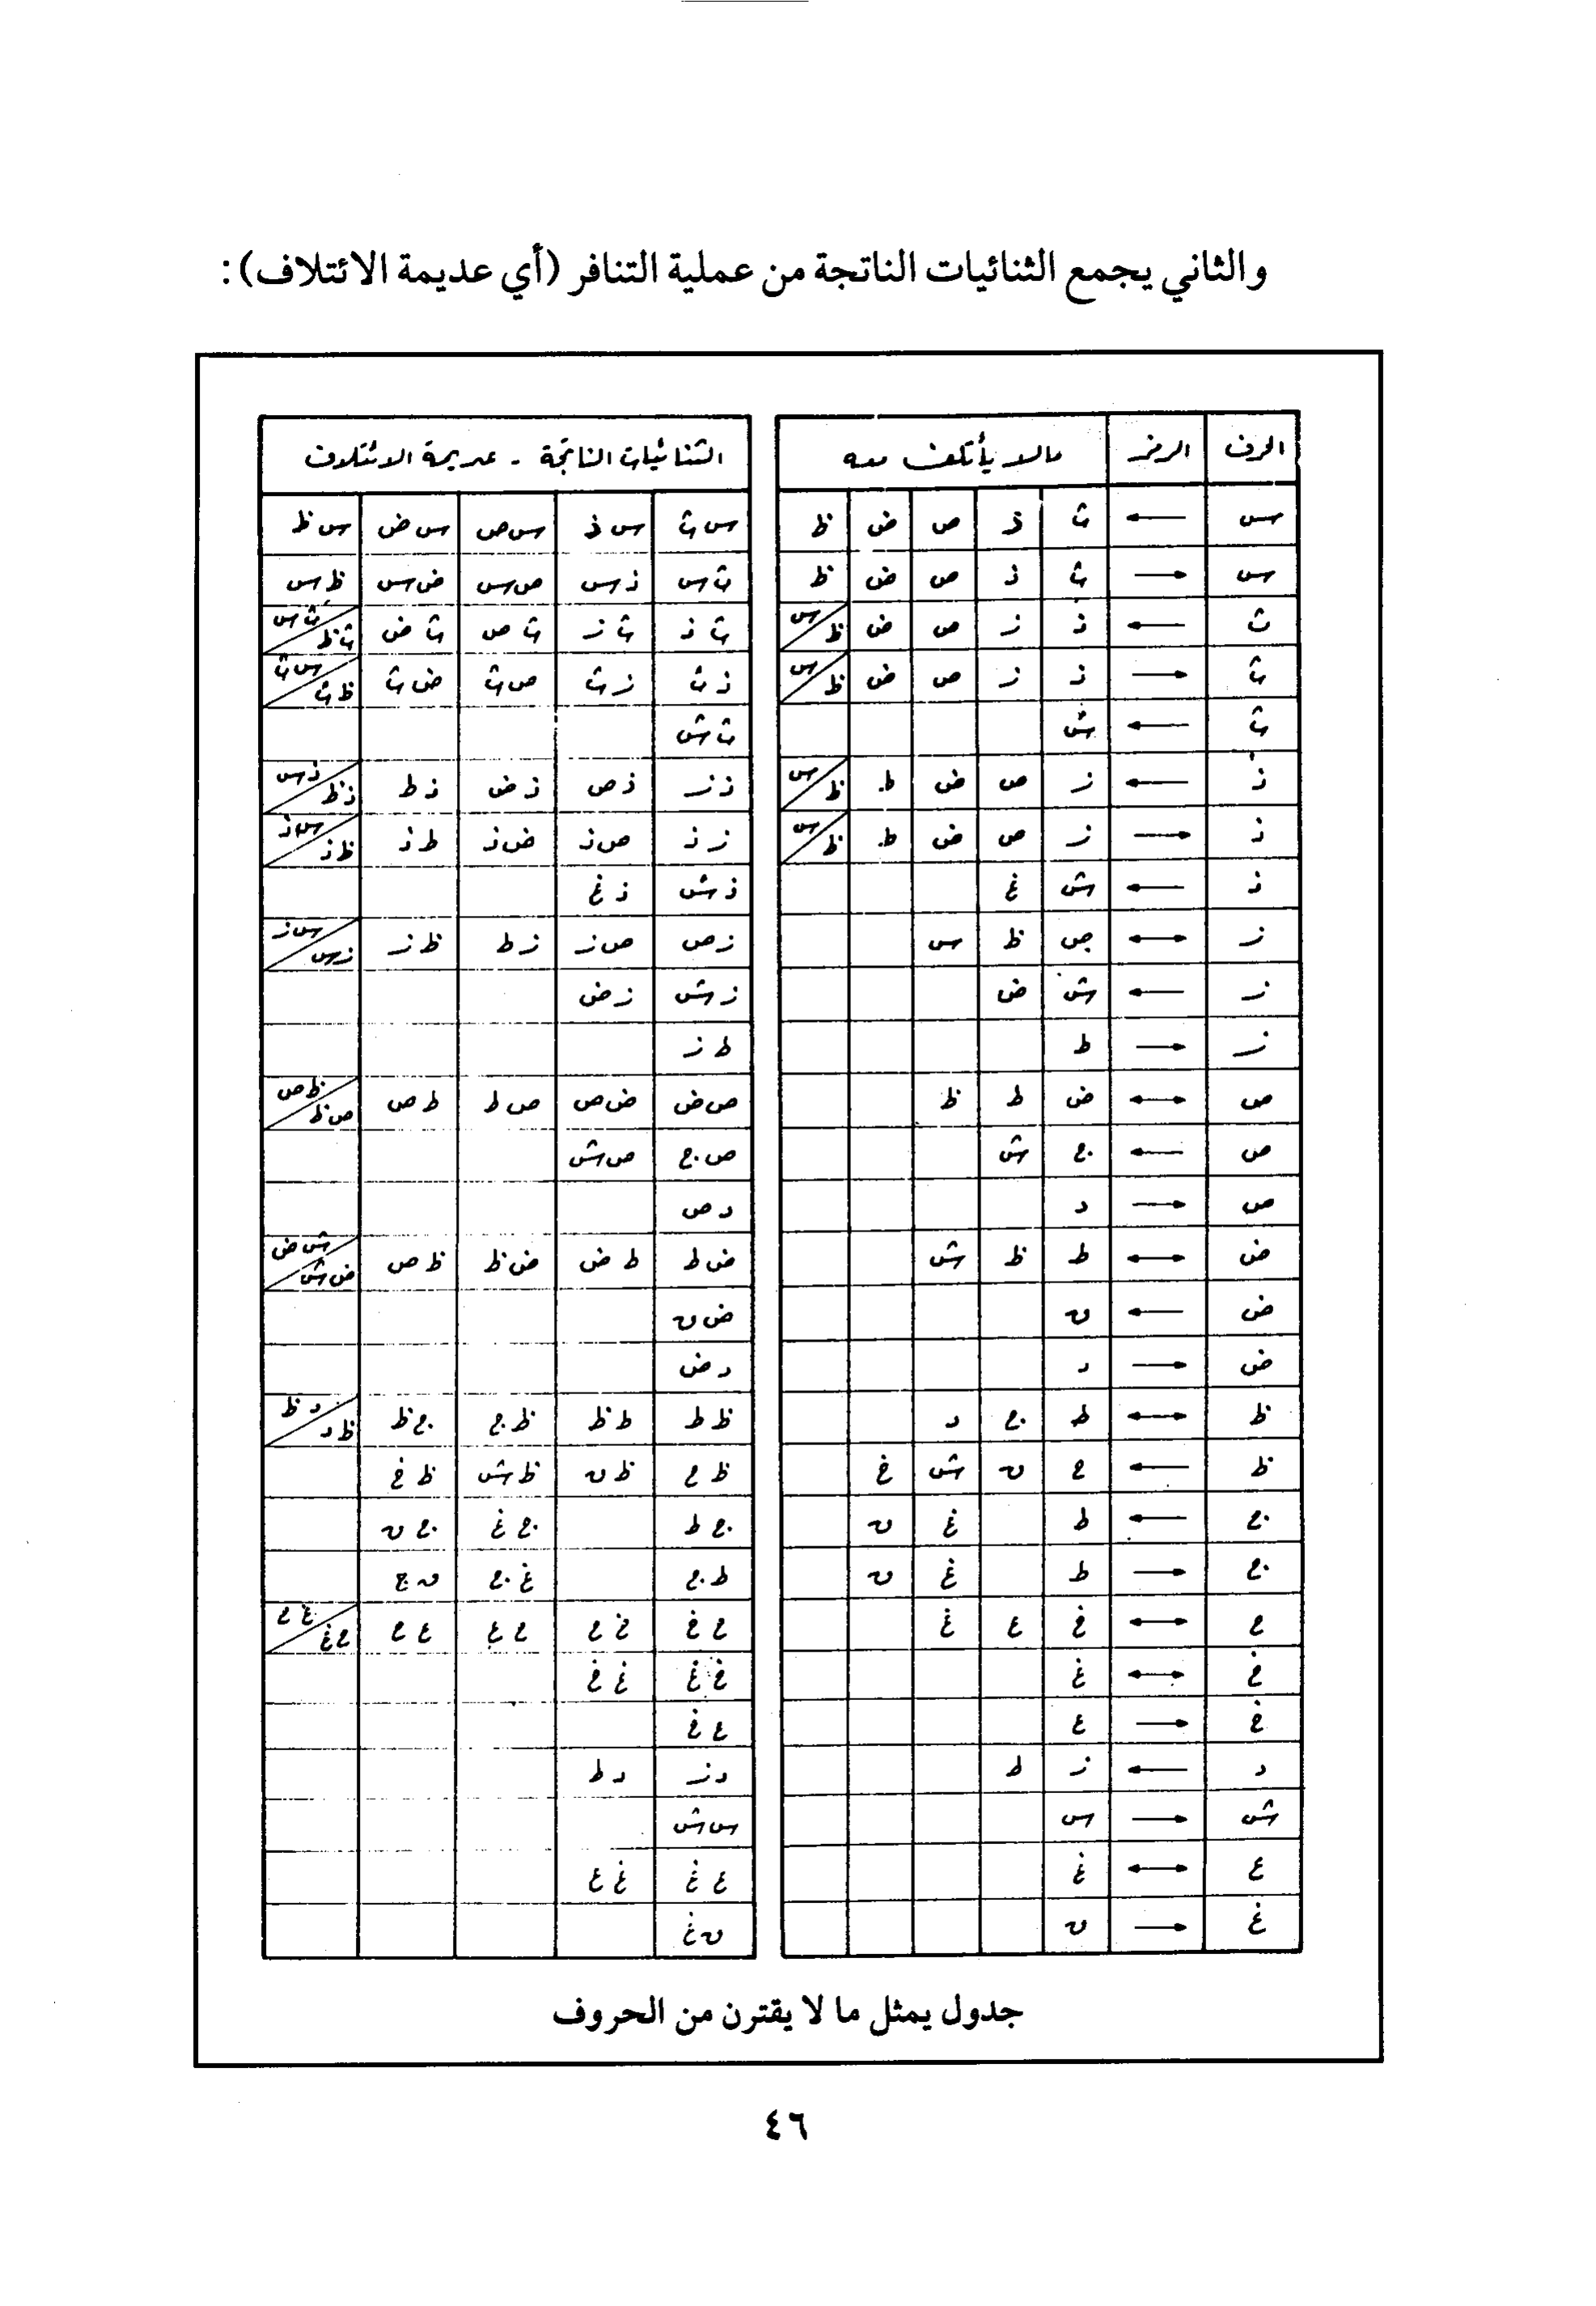 والثاني يجمع الثنائيات الناتجة من عملية التنافر (أي عديمة الائتلاف):
الحرف الرمز مالا يأتلف معه الثنائيات الناتجة - عديمة الائتلاف
س ← ث ذ ص ض ظ س ث س ذ س ص س ض س ظ
س → ث ذ ص ض ظ ث س ذ س ص س ض س ظ س
ث ← ذ ز ص ض س/ظ ث ذ ث ز ث ص ث ض ث س/ث ظ
ث → ذ ز ص ض س/ظ ذ ث ز ث ص ث ض ث س ث/ظ ث
ث ← ش ث ش
ذ ← ز ص ض ط س/ظ ذ ز ذ ص ذ ض ذ ط ذ س/ذ ظ
ذ → ز ص ض ط س/ظ ز ذ ص ذ ض ذ ط ذ س ذ/ظ ذ
ذ ← ش غ ذ ش ذ غ
ز ↔ ص ظ س ز ص ص ز ز ط ظ ز س ز/ز س
ز ← ش ض ز ش ز ض
ز → ط ط ز
ص ↔ ض ط ظ ص ض ض ص ص ط ط ص ظ ص/ص ظ
ص ← ج ش ص ج ص ش
ص → د د ص
ض ↔ ط ظ ش ض ط ط ض ض ظ ظ ص ش ض/ض ش
ض ← ن ض ن
ض → د د ض
ظ ↔ ط ج د ظ ط ط ظ ظ ج ج ظ د ظ/ظ د
ظ ← ح ن ش خ ظ ح ظ ن ظ ش ظ خ
ج ← ط غ ن ج ط ج غ ج ن
ج → ط غ ن ط ج غ ج ن ج
ح ↔ خ ع غ ح خ خ ح ح ع ع ح غ ح/ح غ
خ ↔ غ خ غ غ خ
خ → ع ع خ
د ← ز ط د ز د ط
ش → س س ش
ع ↔ غ ع غ غ ع
غ → ن ن غ
جدول يمثل ما لا يقترن من الحروف
٤٦